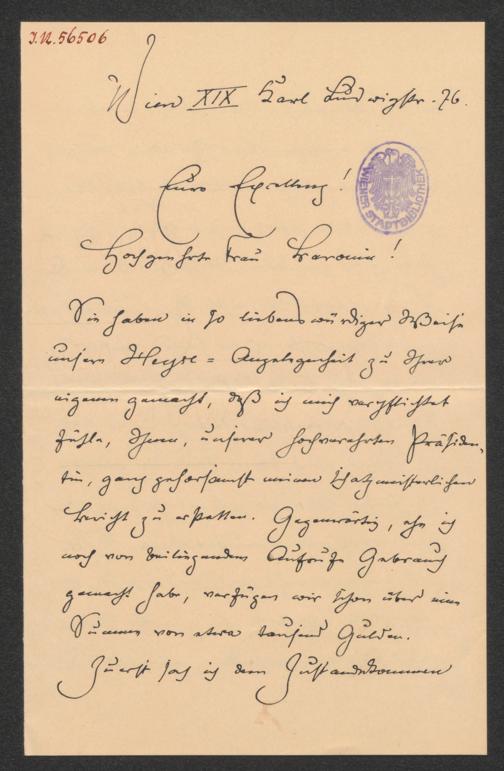 I.N. 56506
Wien XIX Karl Ludwigstr. 76.
WIENER STADTBIBLIOTHEK
Eure Excellenz!
Hochgeehrte Frau Baronin!
Sie haben in so liebenswürdiger Weise
unsere Heyse = Angelegenheit zu Ihrer
eigenen gemacht, daß ich mich verpflichtet
fühle, Ihnen, unserer hochverehrten Präsiden-
tin, ganz gehorsamst meinen schatzmeisterlichen
Bericht zu erstatten. Gegenwärtig, ehe ich
noch von beiliegendem Aufrufe Gebrauch
gemacht habe, verfügen wir schon über eine
Summe von etwa tausend Gulden.
Zuerst sah ich dem Zustandekommen